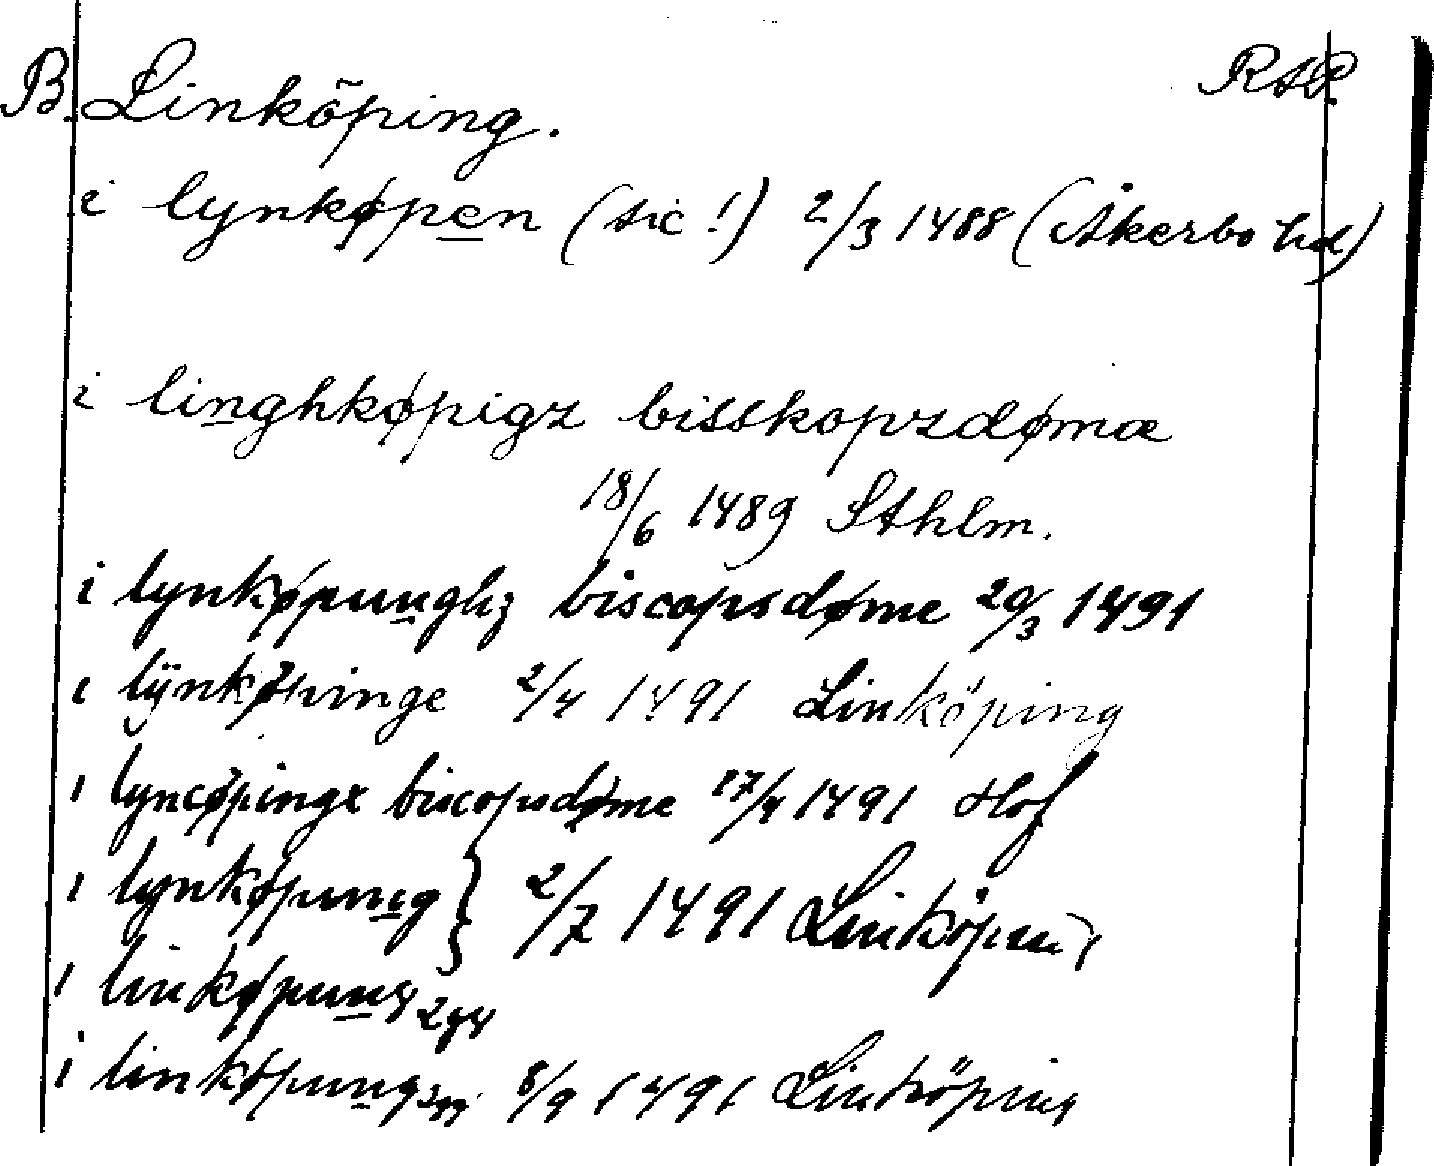 B. Linköping. RAP.
i lynkøpen (sic!) 2/3 1488 (Åkerbo hd)
i linghkøpigz bisskopzdømæ
18/6 1489 Sthlm.
i lynkøpunghz biscopsdøme 20/3 1491
i lÿnkøpinge 2/4 1491 Linköping
i lyncøpingx biscopsdøme 17/4 1491 Hof
i lynkøpung } 2/7 1491 Linköping
i linkøpung 2 ggr
i linkøpung 3 ggr 8/9 1491 Linköping